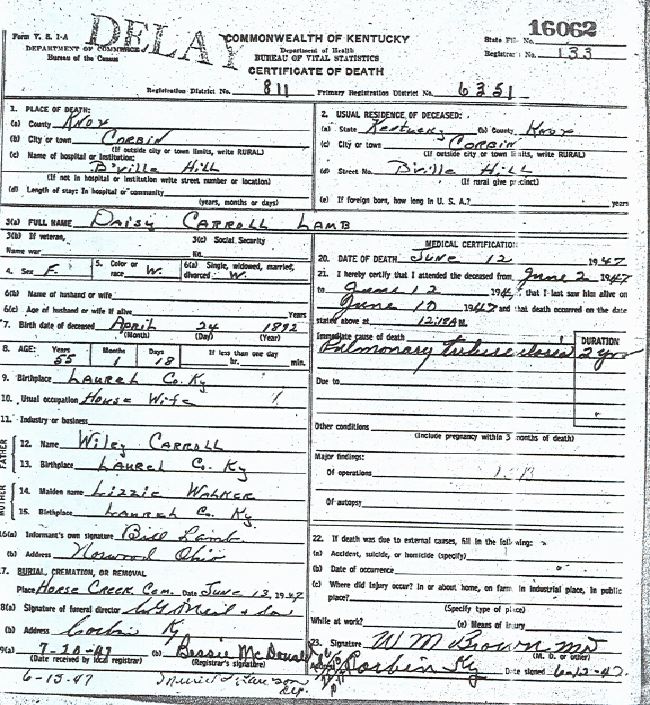 Form V. S. 1-A
DELAY
DEPARTMENT OF COMMERCE
Bureau of the Census
COMMONWEALTH OF KENTUCKY
Department of Health
BUREAU OF VITAL STATISTICS
CERTIFICATE OF DEATH
16062
State File No.
Registrar's No. 133
Registration District No. 811 Primary Registration District No. 6351
1. PLACE OF DEATH:
(a) County Knox
(b) City or town Corbin
(If outside city or town limits, write RURAL)
(c) Name of hospital or institution:
B'ville Hill
(If not in hospital or institution write street number or location)
(d) Length of stay: In hospital or community
(years, months or days)
2. USUAL RESIDENCE OF DECEASED:
(a) State Kentucky (b) County Knox
(c) City or town Corbin
(If outside city or town limits, write RURAL)
(d) Street No. B'ville Hill
(If rural give precinct)
(e) If foreign born, how long in U. S. A.? years
3(a) FULL NAME Daisy Carroll Lamb
3(b) If veteran,
Name war
3(c) Social Security
No.
4. Sex F.
5. Color or
race W.
6(a) Single, widowed, married,
divorced W.
6(b) Name of husband or wife
6(c) Age of husband or wife if alive Years
7. Birth date of deceased April 24 1892
(Month) (Day) (Year)
8. AGE: Years Months Days If less than one day
55 1 18 hr. min.
9. Birthplace Laurel Co. Ky
10. Usual occupation House Wife
11. Industry or business
FATHER
12. Name Wiley Carroll
13. Birthplace Laurel Co. Ky
MOTHER
14. Maiden name Lizzie Walker
15. Birthplace Laurel Co. Ky
16(a) Informant's own signature Bill Lamb
(b) Address Norwood Ohio
17. BURIAL, CREMATION, OR REMOVAL
Place Horse Creek Cem. Date June 13, 1947
18(a) Signature of funeral director
(b) Address Corbin Ky
19(a) 7-20-47 (b) Bessie McDonald
(Date received by local registrar) (Registrar's signature)
6-13-47
MEDICAL CERTIFICATION
20. DATE OF DEATH June 12 1947
21. I hereby certify that I attended the deceased from June 2 1947
to June 12 1947, that I last saw him alive on
June 10 1947 and that death occurred on the date
stated above at 12:18 AM.
Immediate cause of death
DURATION
Pulmonary tuberculosis 2 yrs
Due to
Other conditions
(Include pregnancy within 3 months of death)
Major findings:
Of operations
Of autopsy
22. If death was due to external causes, fill in the following:
(a) Accident, suicide, or homicide (specify)
(b) Date of occurrence
(c) Where did injury occur? In or about home, on farm, in industrial place, in public
place?
(Specify type of place)
While at work? (e) Means of injury
23. Signature W M Brown MD
(M. D. or other)
Corbin Ky Date signed 6-12-47